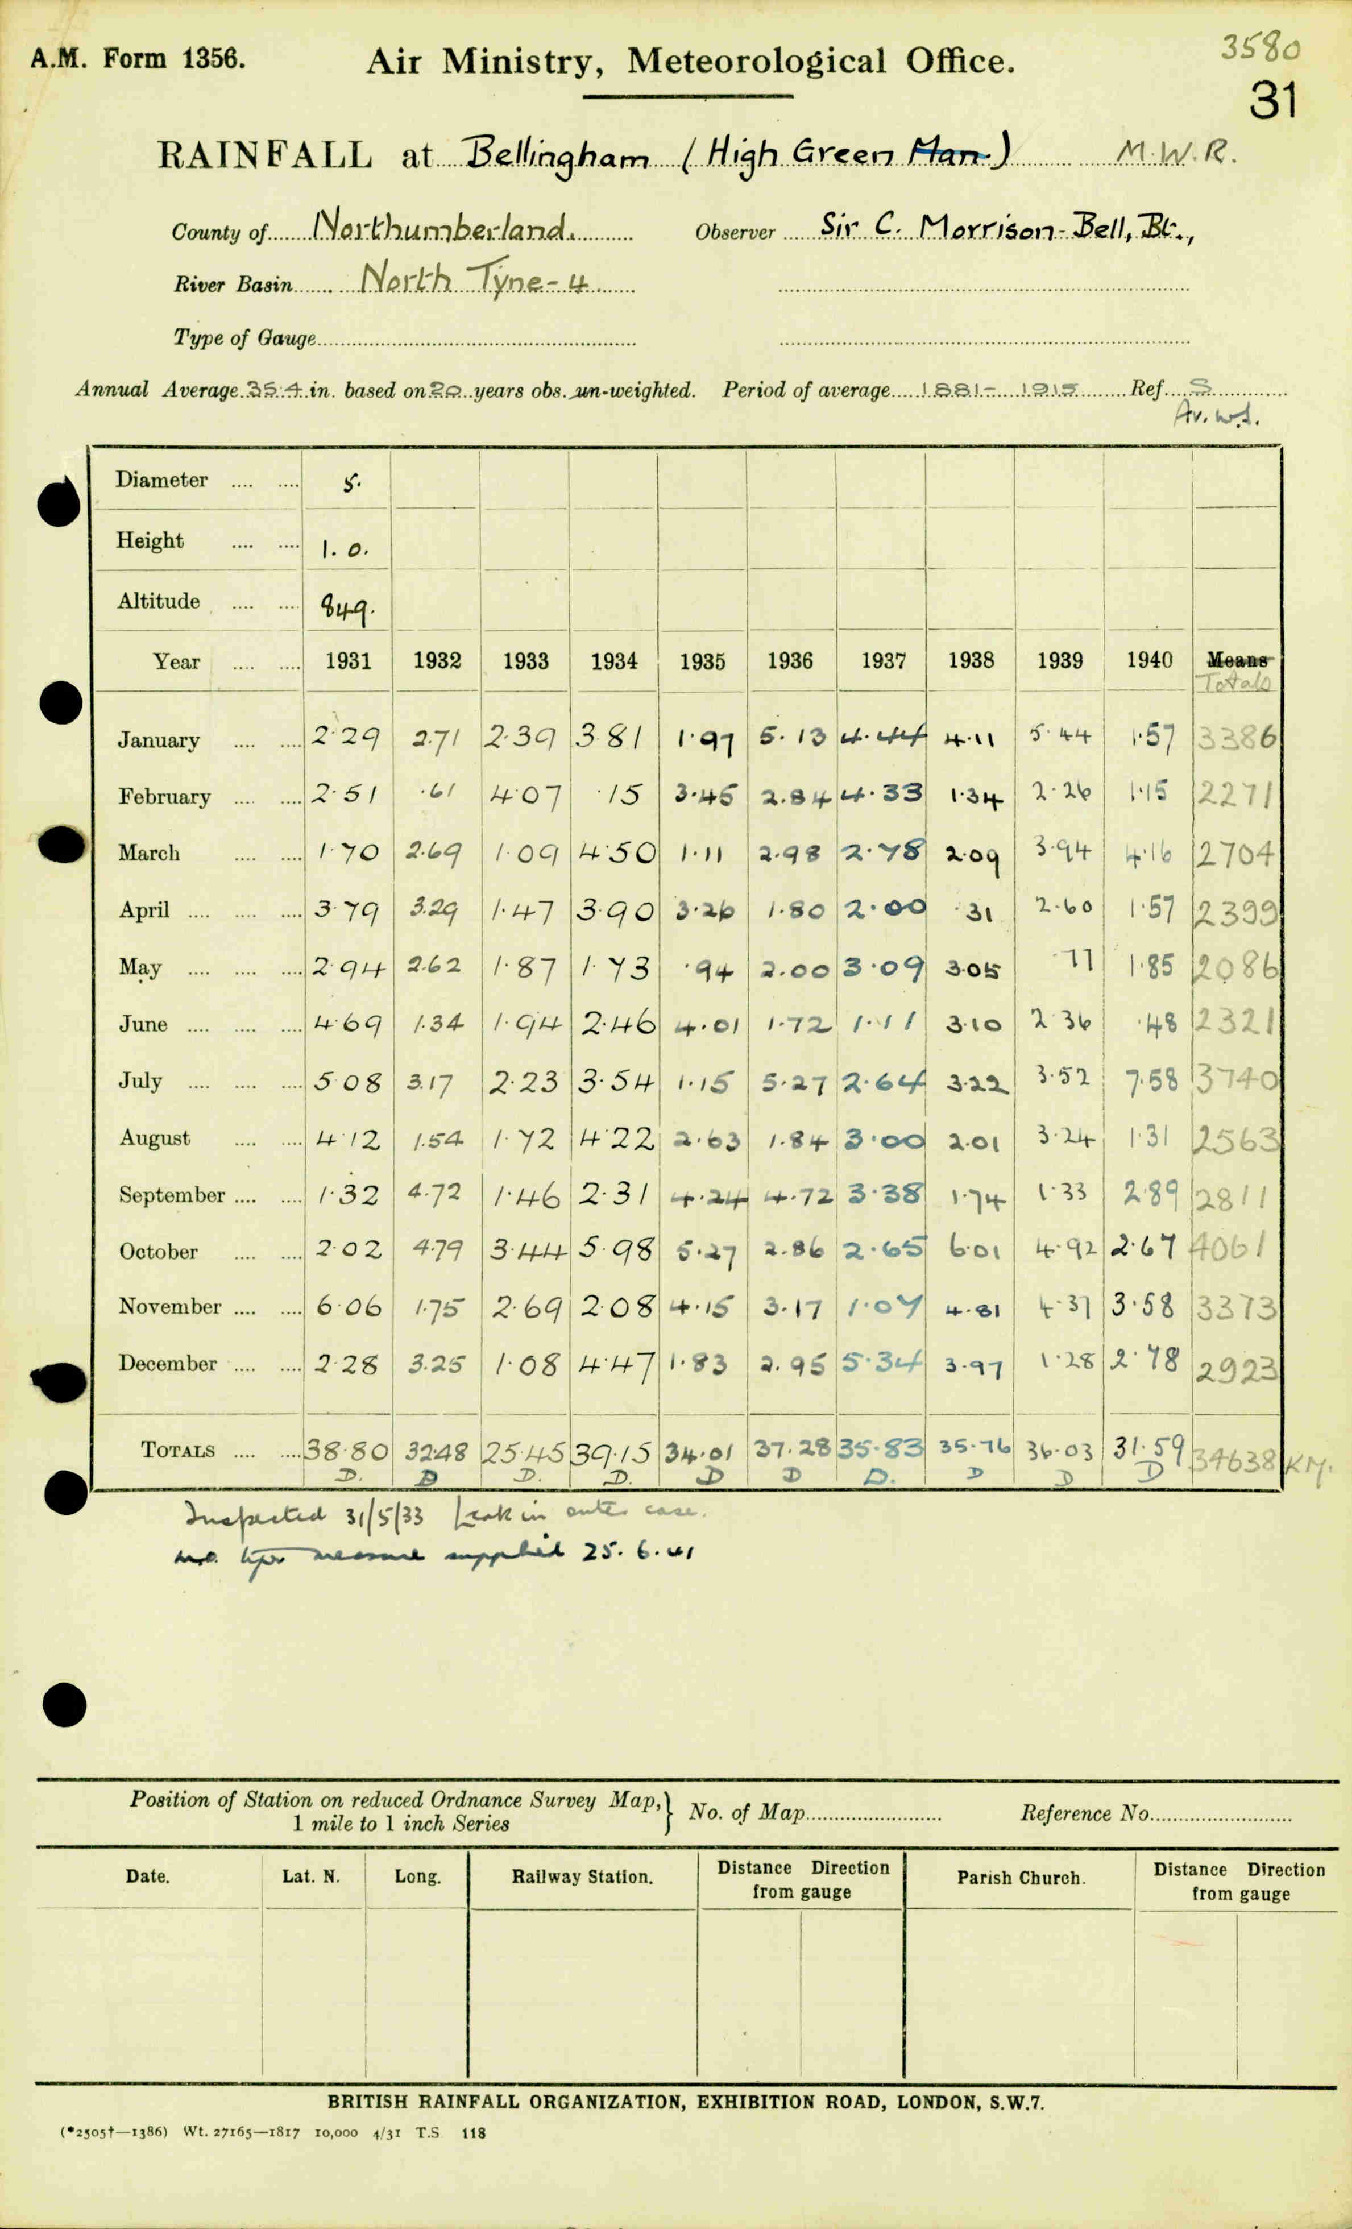 A.M. Form 1356.
Air Ministry, Meteorological Office.
3580
31
RAINFALL at Bellingham (High Green Man.) M.W.R.
County of Northumberland. Observer Sir C. Morrison-Bell, Bt.,
River Basin North Tyne-4
Type of Gauge
Annual Average 35.4 in. based on 20 years obs. un-weighted. Period of average 1881- 1915 Ref. S
Av. wd.
Diameter 5.
Height 1. 0.
Altitude 849.
Year 1931 1932 1933 1934 1935 1936 1937 1938 1939 1940 Means
Totals
January 2.29 2.71 2.39 3.81 1.97 5.13 4.44 4.11 5.44 1.57 3386
February 2.51 .61 4.07 .15 3.45 2.84 4.33 1.34 2.26 1.15 2271
March 1.70 2.69 1.09 4.50 1.11 2.98 2.78 2.09 3.94 4.16 2704
April 3.79 3.29 1.47 3.90 3.26 1.80 2.00 .31 2.60 1.57 2399
May 2.94 2.62 1.87 1.73 .94 2.00 3.09 3.05 .77 1.85 2086
June 4.69 1.34 1.94 2.46 4.01 1.72 1.11 3.10 2.36 .48 2321
July 5.08 3.17 2.23 3.54 1.15 5.27 2.64 3.22 3.52 7.58 3740
August 4.12 1.54 1.72 4.22 2.63 1.84 3.00 2.01 3.24 1.31 2563
September 1.32 4.72 1.46 2.31 4.24 4.72 3.38 1.74 1.33 2.89 2811
October 2.02 4.79 3.44 5.98 5.27 2.86 2.65 6.01 4.92 2.67 4061
November 6.06 1.75 2.69 2.08 4.15 3.17 1.07 4.81 4.37 3.58 3373
December 2.28 3.25 1.08 4.47 1.83 2.95 5.34 3.97 1.28 2.78 2923
TOTALS 38.80 32.48 25.45 39.15 34.01 37.28 35.83 35.76 36.03 31.59 34638 KM.
D. D D. D. D D D. D D D
Inspected 31/5/33 Leak in outer case.
M.O. type measure supplied 25.6.41
Position of Station on reduced Ordnance Survey Map, 1 mile to 1 inch Series } No. of Map Reference No.
Date. Lat. N. Long. Railway Station. Distance Direction from gauge Parish Church. Distance Direction from gauge
BRITISH RAINFALL ORGANIZATION, EXHIBITION ROAD, LONDON, S.W.7.
(*2505†—1386) Wt. 27165—1817 10,000 4/31 T.S 118